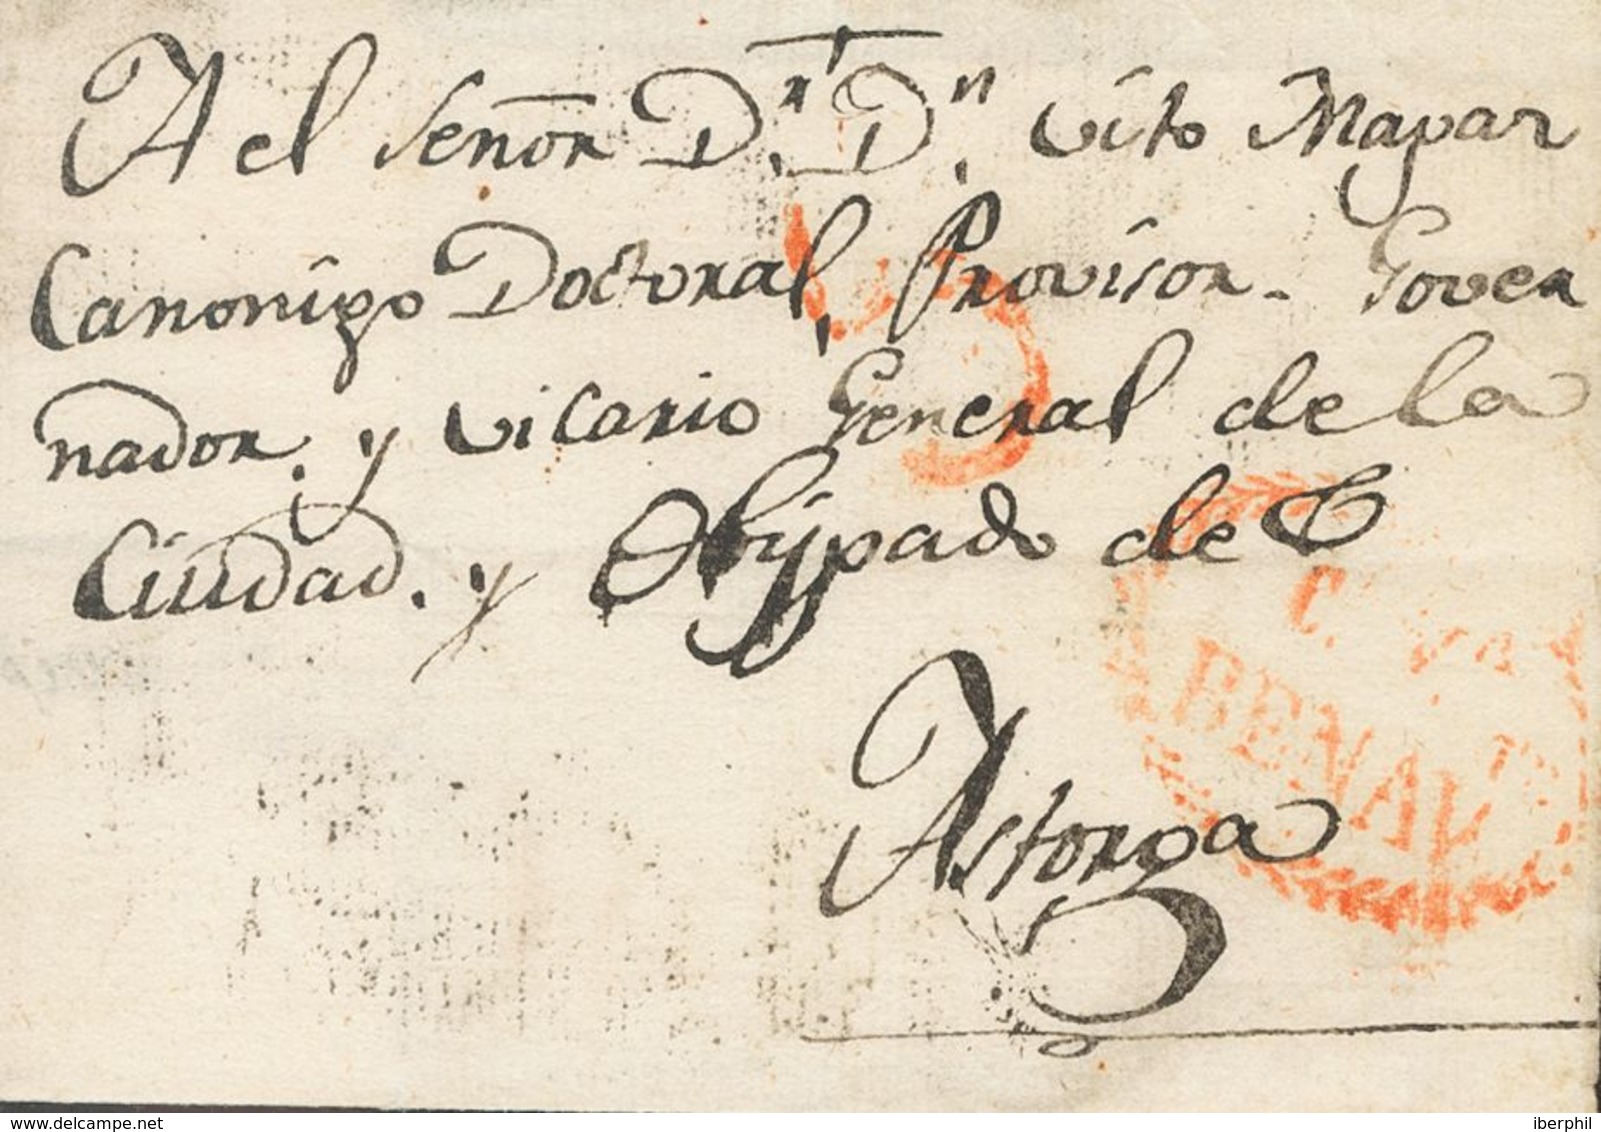 A el Señor D.r D.n Vito Mapar
Canonigo Doctoral, Provisor. Gover
nador. y Vicario General de la
Ciudad. y Obispado de
Astorga
5
BENAV.TE
delcampe.net
iberphil